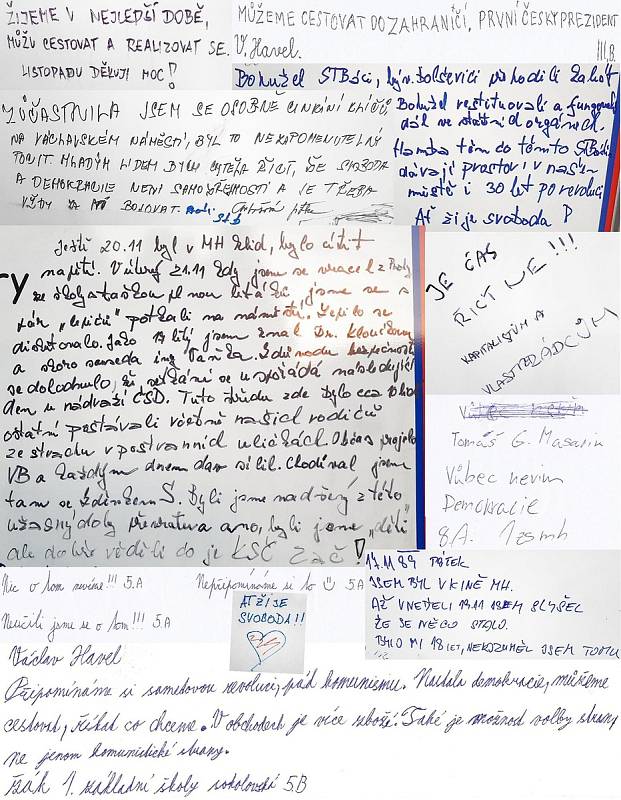 ŽIJEME V NEJLEPŠÍ DOBĚ,
MŮŽU CESTOVAT A REALIZOVAT SE.
LISTOPADU DĚKUJI MOC!
MŮŽEME CESTOVAT DO ZAHRANIČÍ, PRVNÍ ČESKÝ PREZIDENT
V. Havel. III.B.
Bohužel STBáci, býv. bolševici
Bohužel restituovali a fungovali
dál ve státních orgánech.
Hanba těm co těmto STBáků
dávají prostor i v našem
městě i 30 let po revoluci
Ať žije svoboda
ZÚČASTNILA JSEM SE OSOBNĚ CINKÁNÍ KLÍČŮ
NA VÁCLAVSKÉM NÁMĚSTÍ, BYL TO NEZAPOMENUTELNÝ
POCIT. MLADÝM LIDEM BYCH CHTĚLA ŘÍCT, ŽE SVOBODA
A DEMOKRACIE NENÍ SAMOZŘEJMOSTÍ A JE TŘEBA
VŽDY ZA NÍ BOJOVAT.
Ještě 20.11 byl v MH klid, bylo cítit
napětí. V úterý 21.11 kdy jsme se vracel z Prahy
ze školy a taškou plnou letáků, jsme se s
pár „lepiči" potkali na náměstí. Lepilo se
diskutovalo. Jako 17 letý jsem znal Dr.
a skoro souseda ing. Vaňka. Z důvodu bezpečnosti
se dohodnulo, že setkání se uspořádá následující
den u nádraží ČSD. Tuto středu zde bylo cca 10 lidí
ostatní postávali včetně našich rodičů
ze strachu v postranních uličkách. Občas projelo
VB a každým dnem dav sílil. Chodíval jsem
tam se Zdeňkem Š. Byli jsme nadšený z této
úžasný doby převratu a ano, byli jsme „děti"
ale dobře věděli co je KSČ zač!
JE ČAS
ŘÍCT NE!!!
KAPITALISTŮM A
VLASTIZRÁDCŮM
Tomáš G. Masarin
Vůbec nevim
Demokracie
8.A. 1zsmh
17.11 89 PÁTEK
JSEM BYL V KINĚ MH.
AŽ V NEDĚLI 19.11 JSEM SLYŠEL
ŽE SE NĚCO STALO.
BYLO MI 18 LET, NEROZUMĚL JSEM TOMU
Nic o tom nevíme!!! 5.A
Nepřipomínáme si to ☺ 5.A
Neučili jsme se o tom!!! 5.A
AŤ ŽIJE
SVOBODA!!
Václav Havel
Připomínáme si sametovou revoluci, pád komunismu. Nastala demokracie, můžeme
cestovat, říkat co chceme. V obchodech je více zboží. Také je možnost volby strany
ne jenom komunistické strany.
žák 1. základní školy sokolovská 5.B